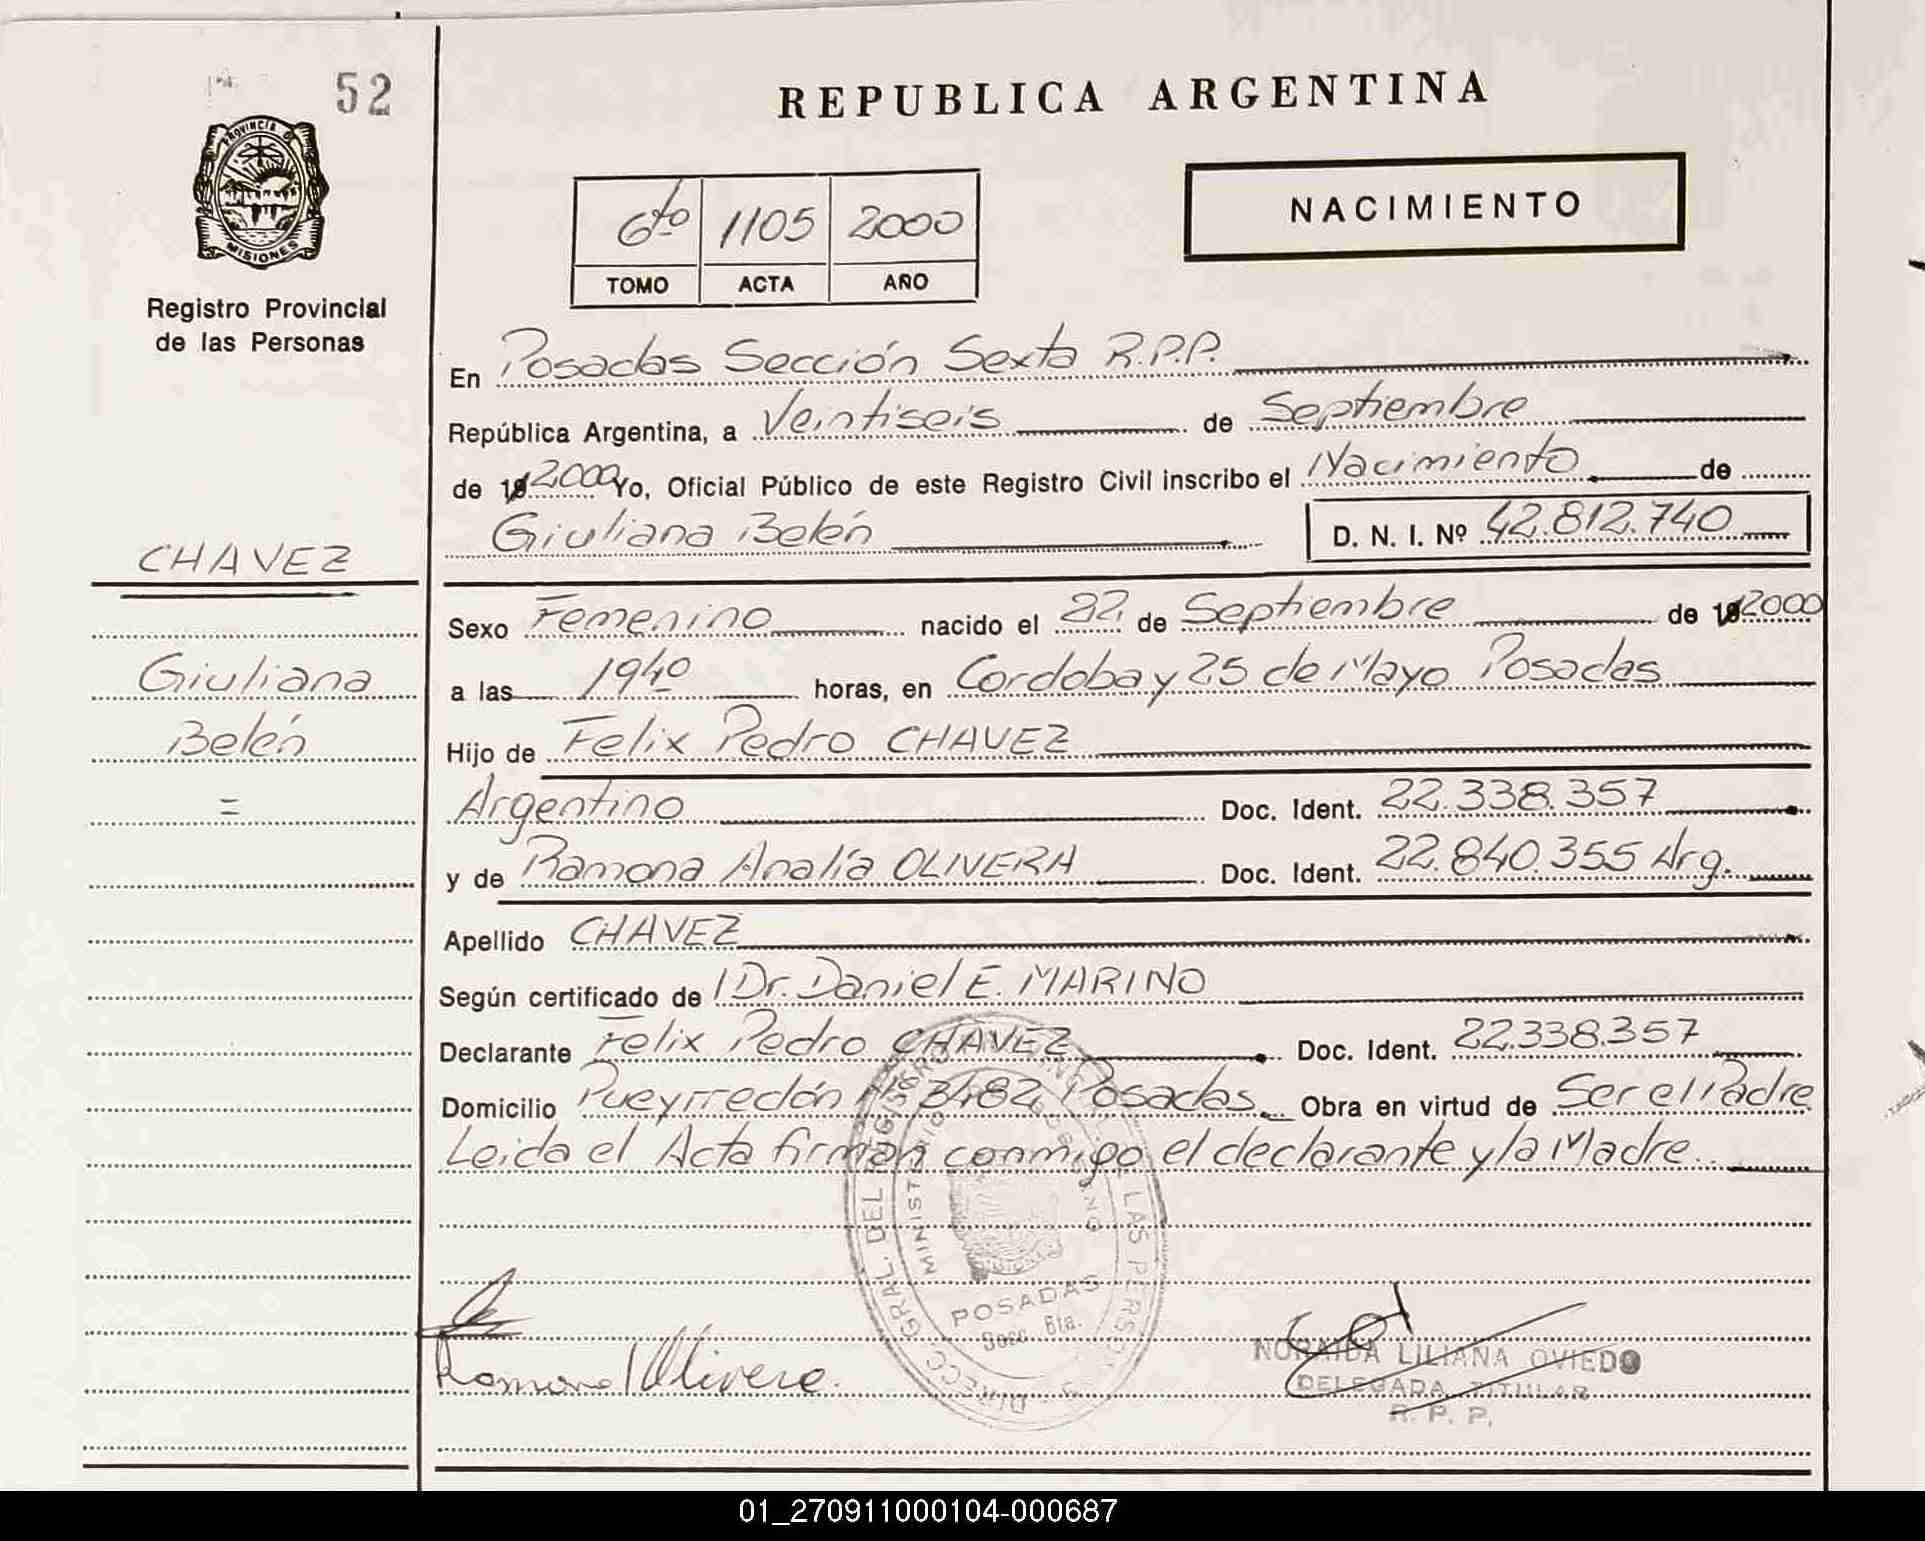 52
PROVINCIA DE
MISIONES
Registro Provincial
de las Personas
CHAVEZ
Giuliana
Belén
=
REPUBLICA ARGENTINA
6to 1105 2000
TOMO ACTA AÑO
NACIMIENTO
En Posadas Sección Sexta R.P.P.
República Argentina, a Veintiseis de Septiembre
de 19 2000 Yo, Oficial Público de este Registro Civil inscribo el Nacimiento de
Giuliana Belén D. N. I. Nº 42.812.740
Sexo Femenino nacido el 22 de Septiembre de 19 2000
a las 19⁴⁰ horas, en Cordoba y 25 de Mayo Posadas
Hijo de Felix Pedro CHAVEZ
Argentino Doc. Ident. 22.338.357
y de Ramona Analía OLIVERA Doc. Ident. 22.840.355 Arg.
Apellido CHAVEZ
Según certificado de Dr. Daniel E. MARINO
Declarante Felix Pedro CHAVEZ Doc. Ident. 22.338.357
Domicilio Pueyrredón Nº 3482 Posadas Obra en virtud de Ser el Padre
Leida el Acta firman conmigo el declarante y la Madre
DIRECC. GRAL. DEL REGISTRO DE LAS PERSONAS
MINISTERIO DE GOBIERNO
POSADAS
Secc. 6ta.
Ramona Olivera
NORAIDA LILIANA OVIEDO
DELEGADA TITULAR
R. P. P.
01_270911000104-000687